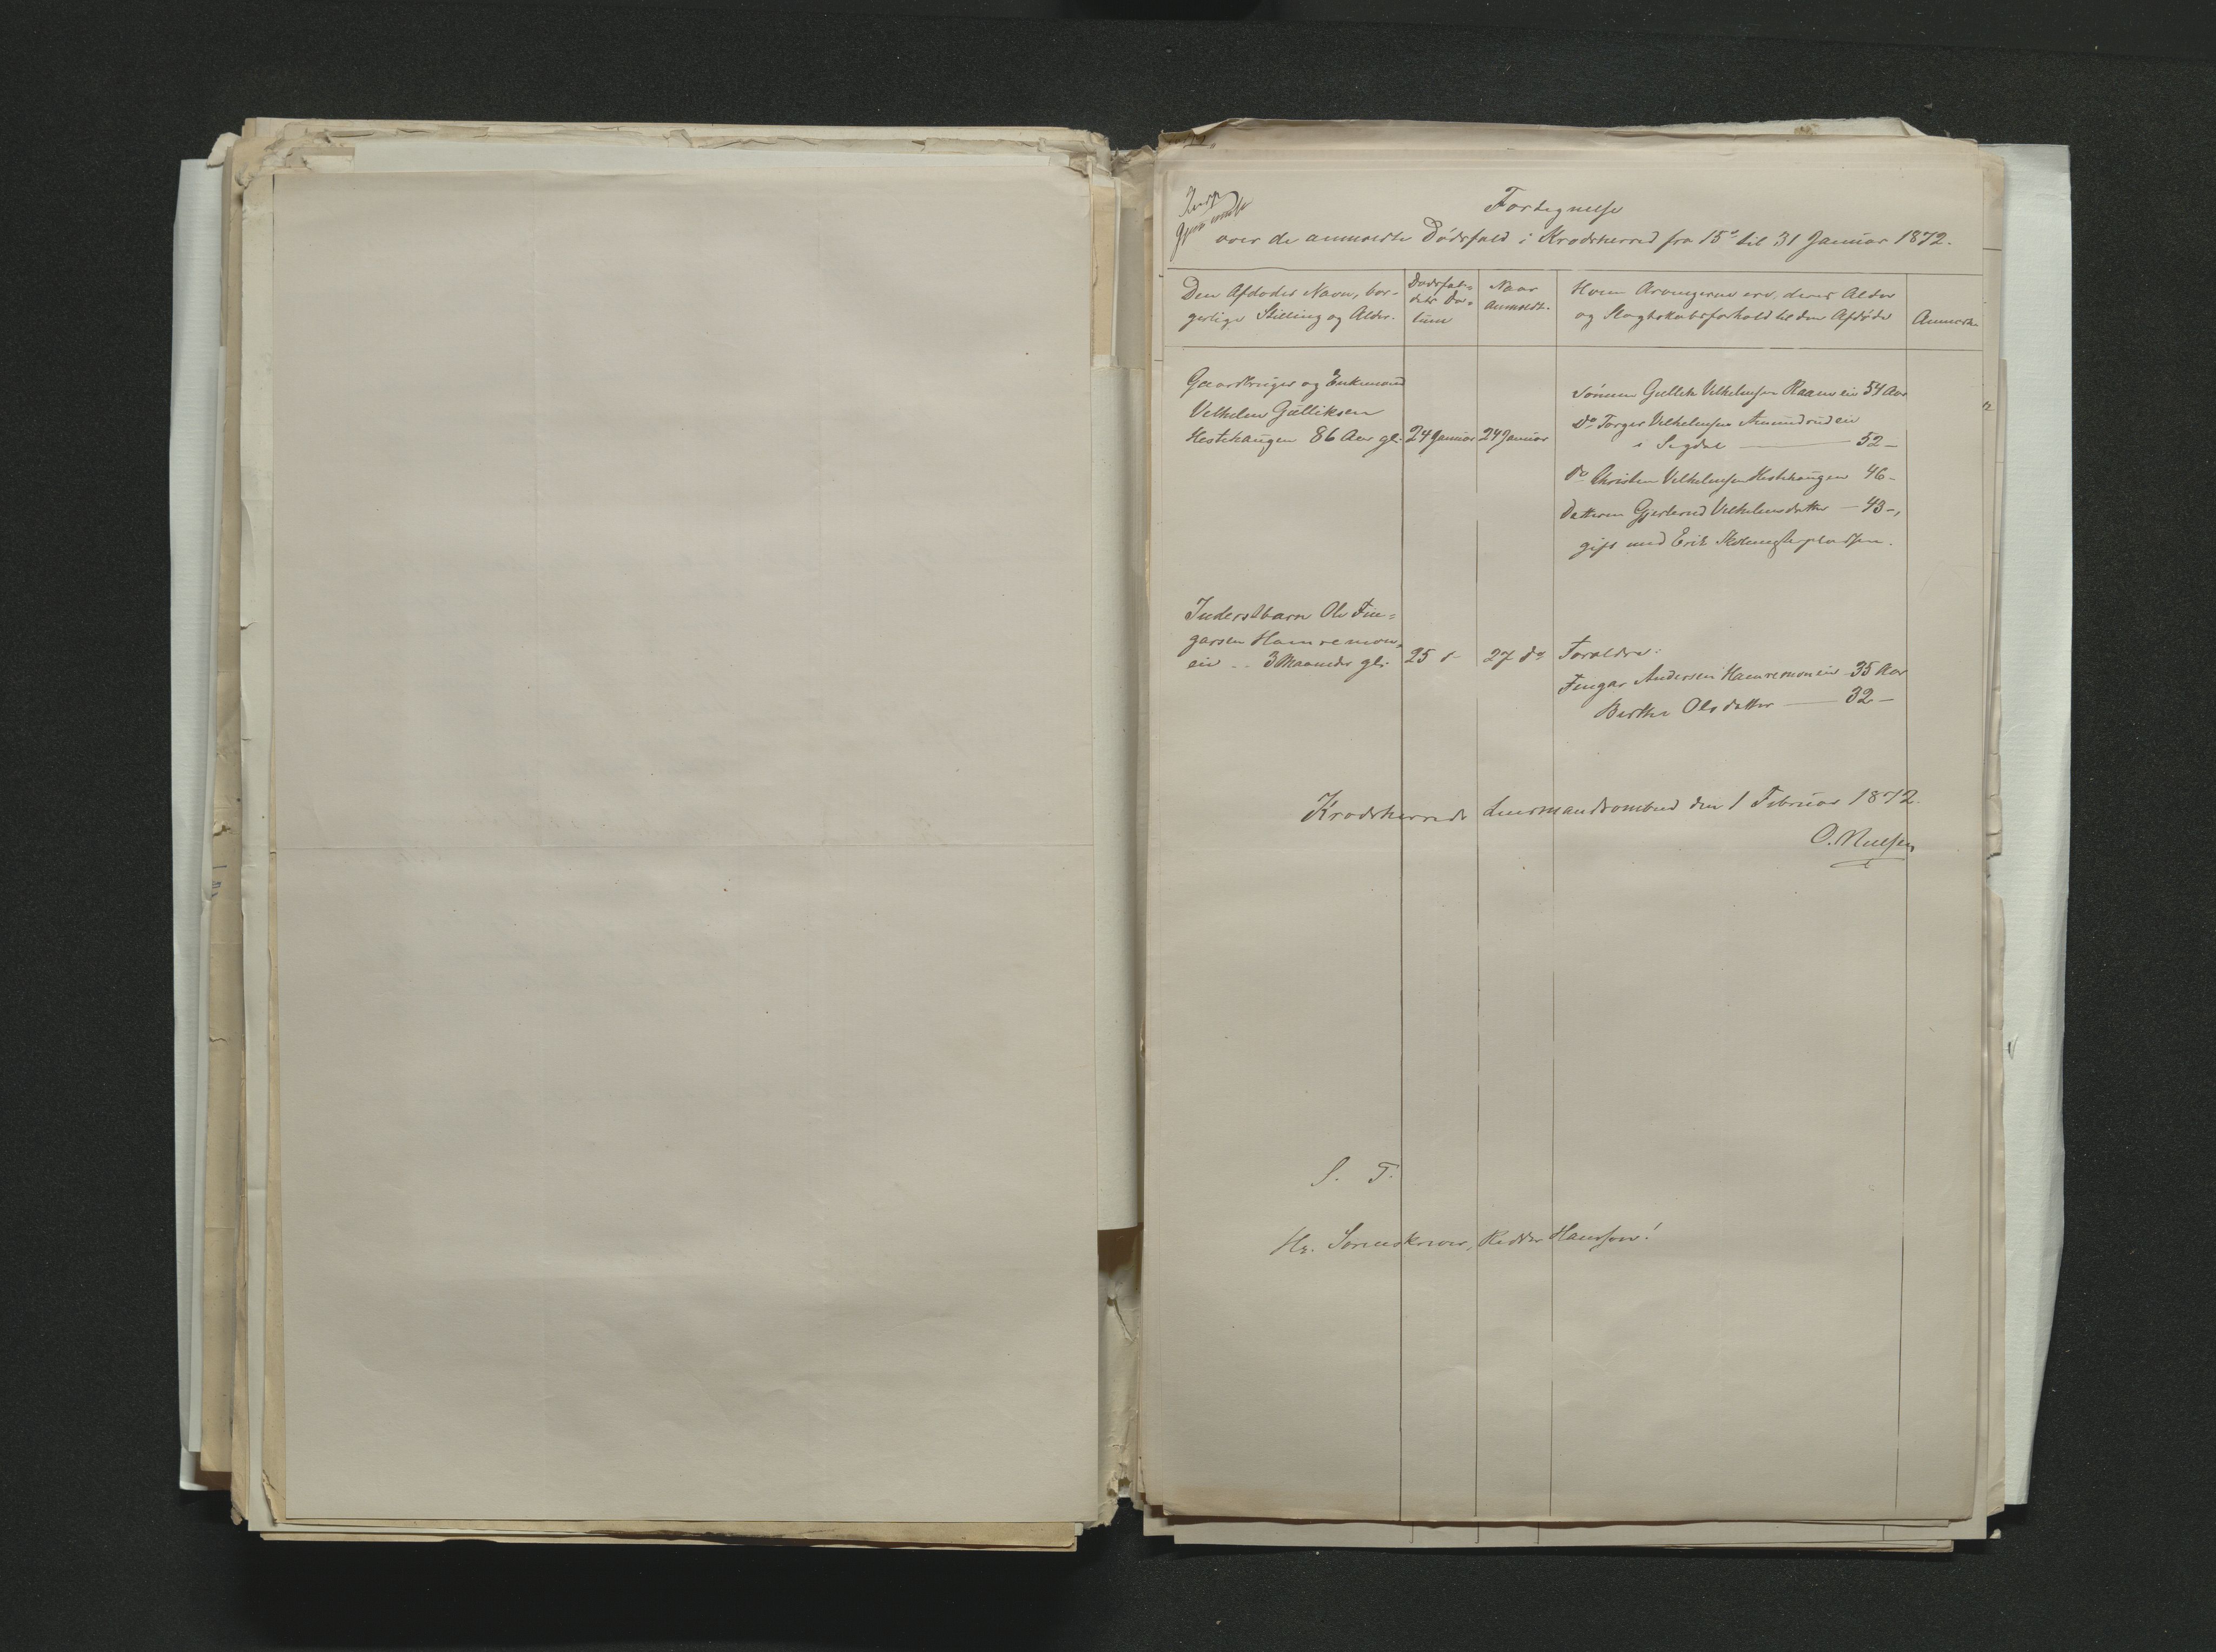 Fortegnelse
over de anmeldte Dödsfald i Krødsherred fra 15de til 31 Januar 1872.
Den Afdødes Navn, bor-
gerlige Stilling og Alder.
Dødsfal-
dets Da-
tum
Naar
anmeldt.
Hvem Arvingerne ere, deres Alder
og Slægtskabsforhold til den Afdøde
Anmærkn.
Gaardbruger og Enkemand
Velhelm Gulliksen
Hestehaugen 86 Aar gl.
24 Januar
24 Januar
Sønnen Gullik Velhelmsen Raaen eie 54 Aar
Do Torger Velhelmsen Amundrud eie
i Sigdal — 52 —
do Christen Velhelmsen Hestehaugen 46 -
Datteren Gjertrud Velhelmsdatter — 43 -,
gift med Erik pladsen.
Inderstbarn Ole Fin-
garsen Hamremoen-
eie .. 3 Maaneder gl.
25 d
27 do
Forældre:
Fingar Andersen Hamremoen eie 35 Aar
Berthe Olsdatter — 32 —
Krødsherreds Lensmandsombud den 1 Februar 1872.
O. Nielsen
S. T.
Hr. Sorenskriver, Ridder Hansson!